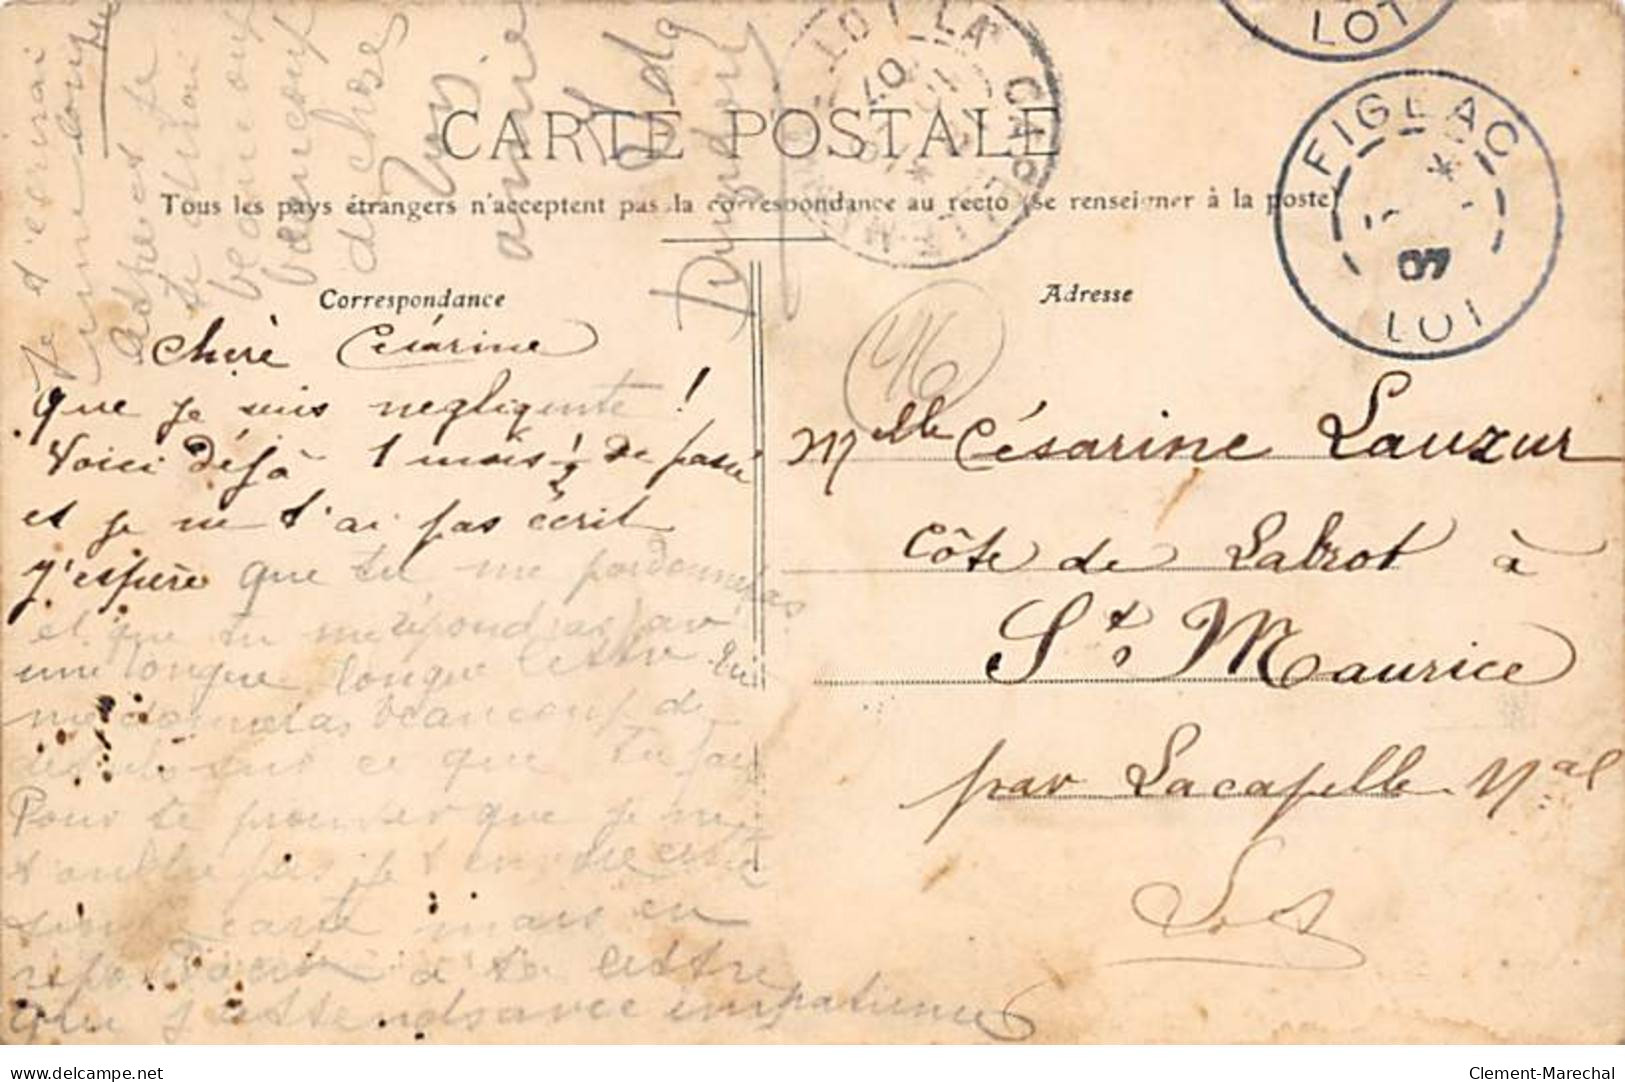 CARTE POSTALE
Tous les pays étrangers n'acceptent pas la correspondance au recto (se renseigner à la poste)
Correspondance
Chère Césarine
que je suis negligente !
Voici déjà 1 mois ½ de passé
et je ne t'ai pas écrit
J'espère que tu me pardonneras
et que tu me répondras par
une longue longue lettre
me donneras beaucoup de
sur ce que tu fais
Pour te prouver que je ne
t'oublie pas je t'envoie cette
carte mais en
à ta lettre
que j'attends avec impatience
Je t'écrirai
une longue
beaucoup
beaucoup
de choses
Ton
amie
Adresse
46
Melle Césarine Lauzur
Côte de Labrot à
St Maurice
par Lacapelle Mal
Lot
LOT
FIGEAC
07
LOT
LACAPELLE-M
LOT
07
delcampe.net
Clement-Marechal